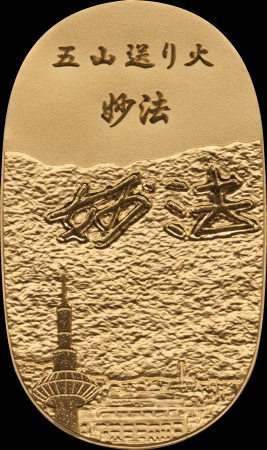 五山送り火
妙法
妙法